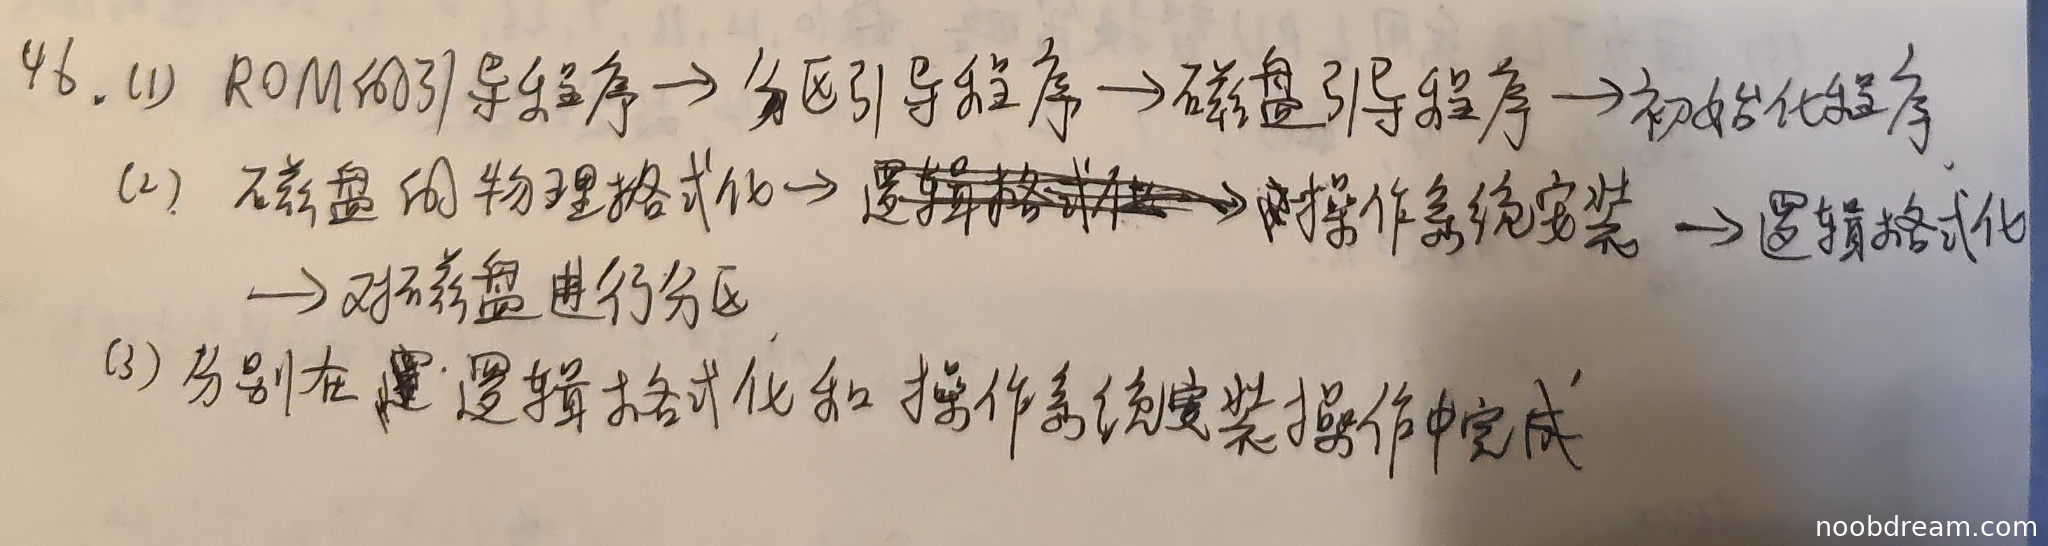 46.(1) ROM的引导程序→分区引导程序→磁盘引导程序→初始化程序.
(2) 磁盘的物理格式化→逻辑格式化→操作系统安装→逻辑格式化
→对磁盘进行分区
(3) 分别在逻辑格式化和操作系统安装操作中完成
noobdream.com